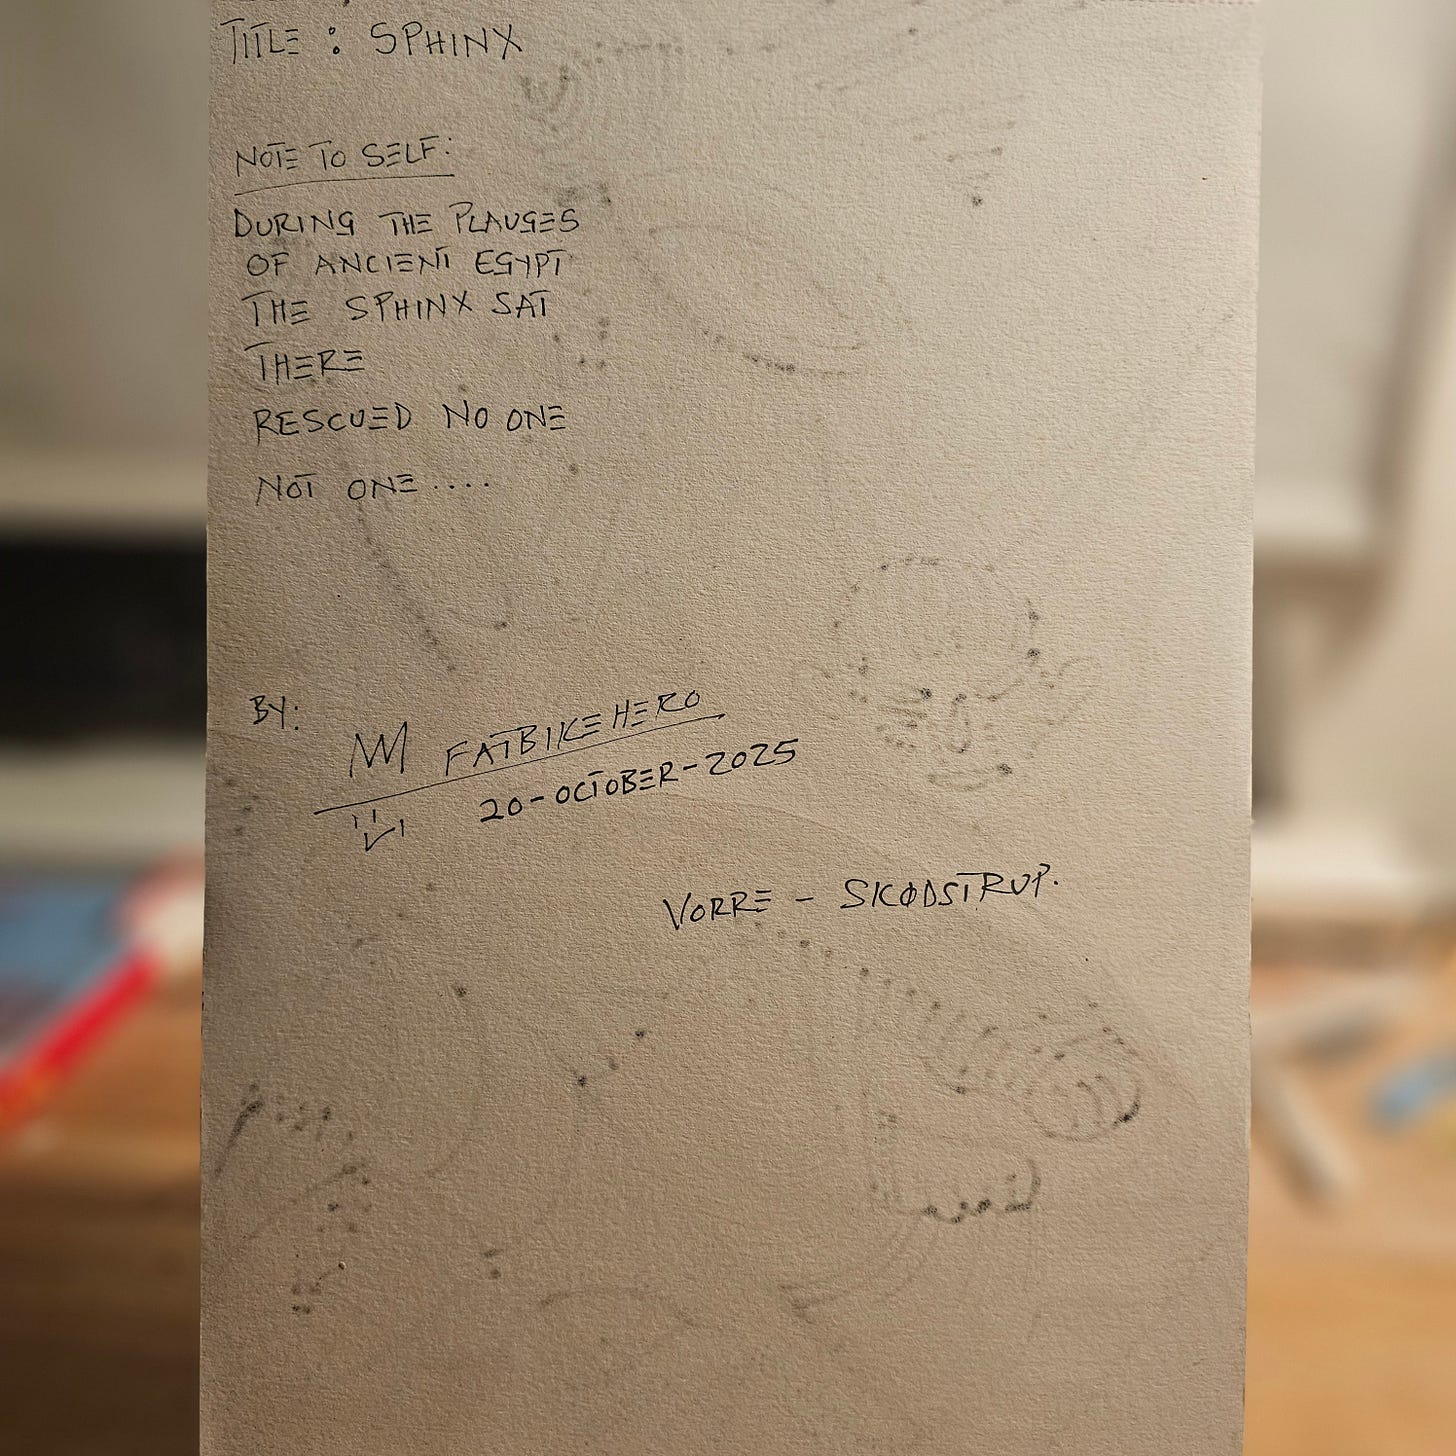 TITLE : SPHINX
NOTE TO SELF:
DURING THE PLAUGES
OF ANCIENT EGYPT
THE SPHINX SAT
THERE
RESCUED NO ONE
NOT ONE....
BY:
FATBIKEHERO
20-OCTOBER-2025
VORRE - SKØDSTRUP.